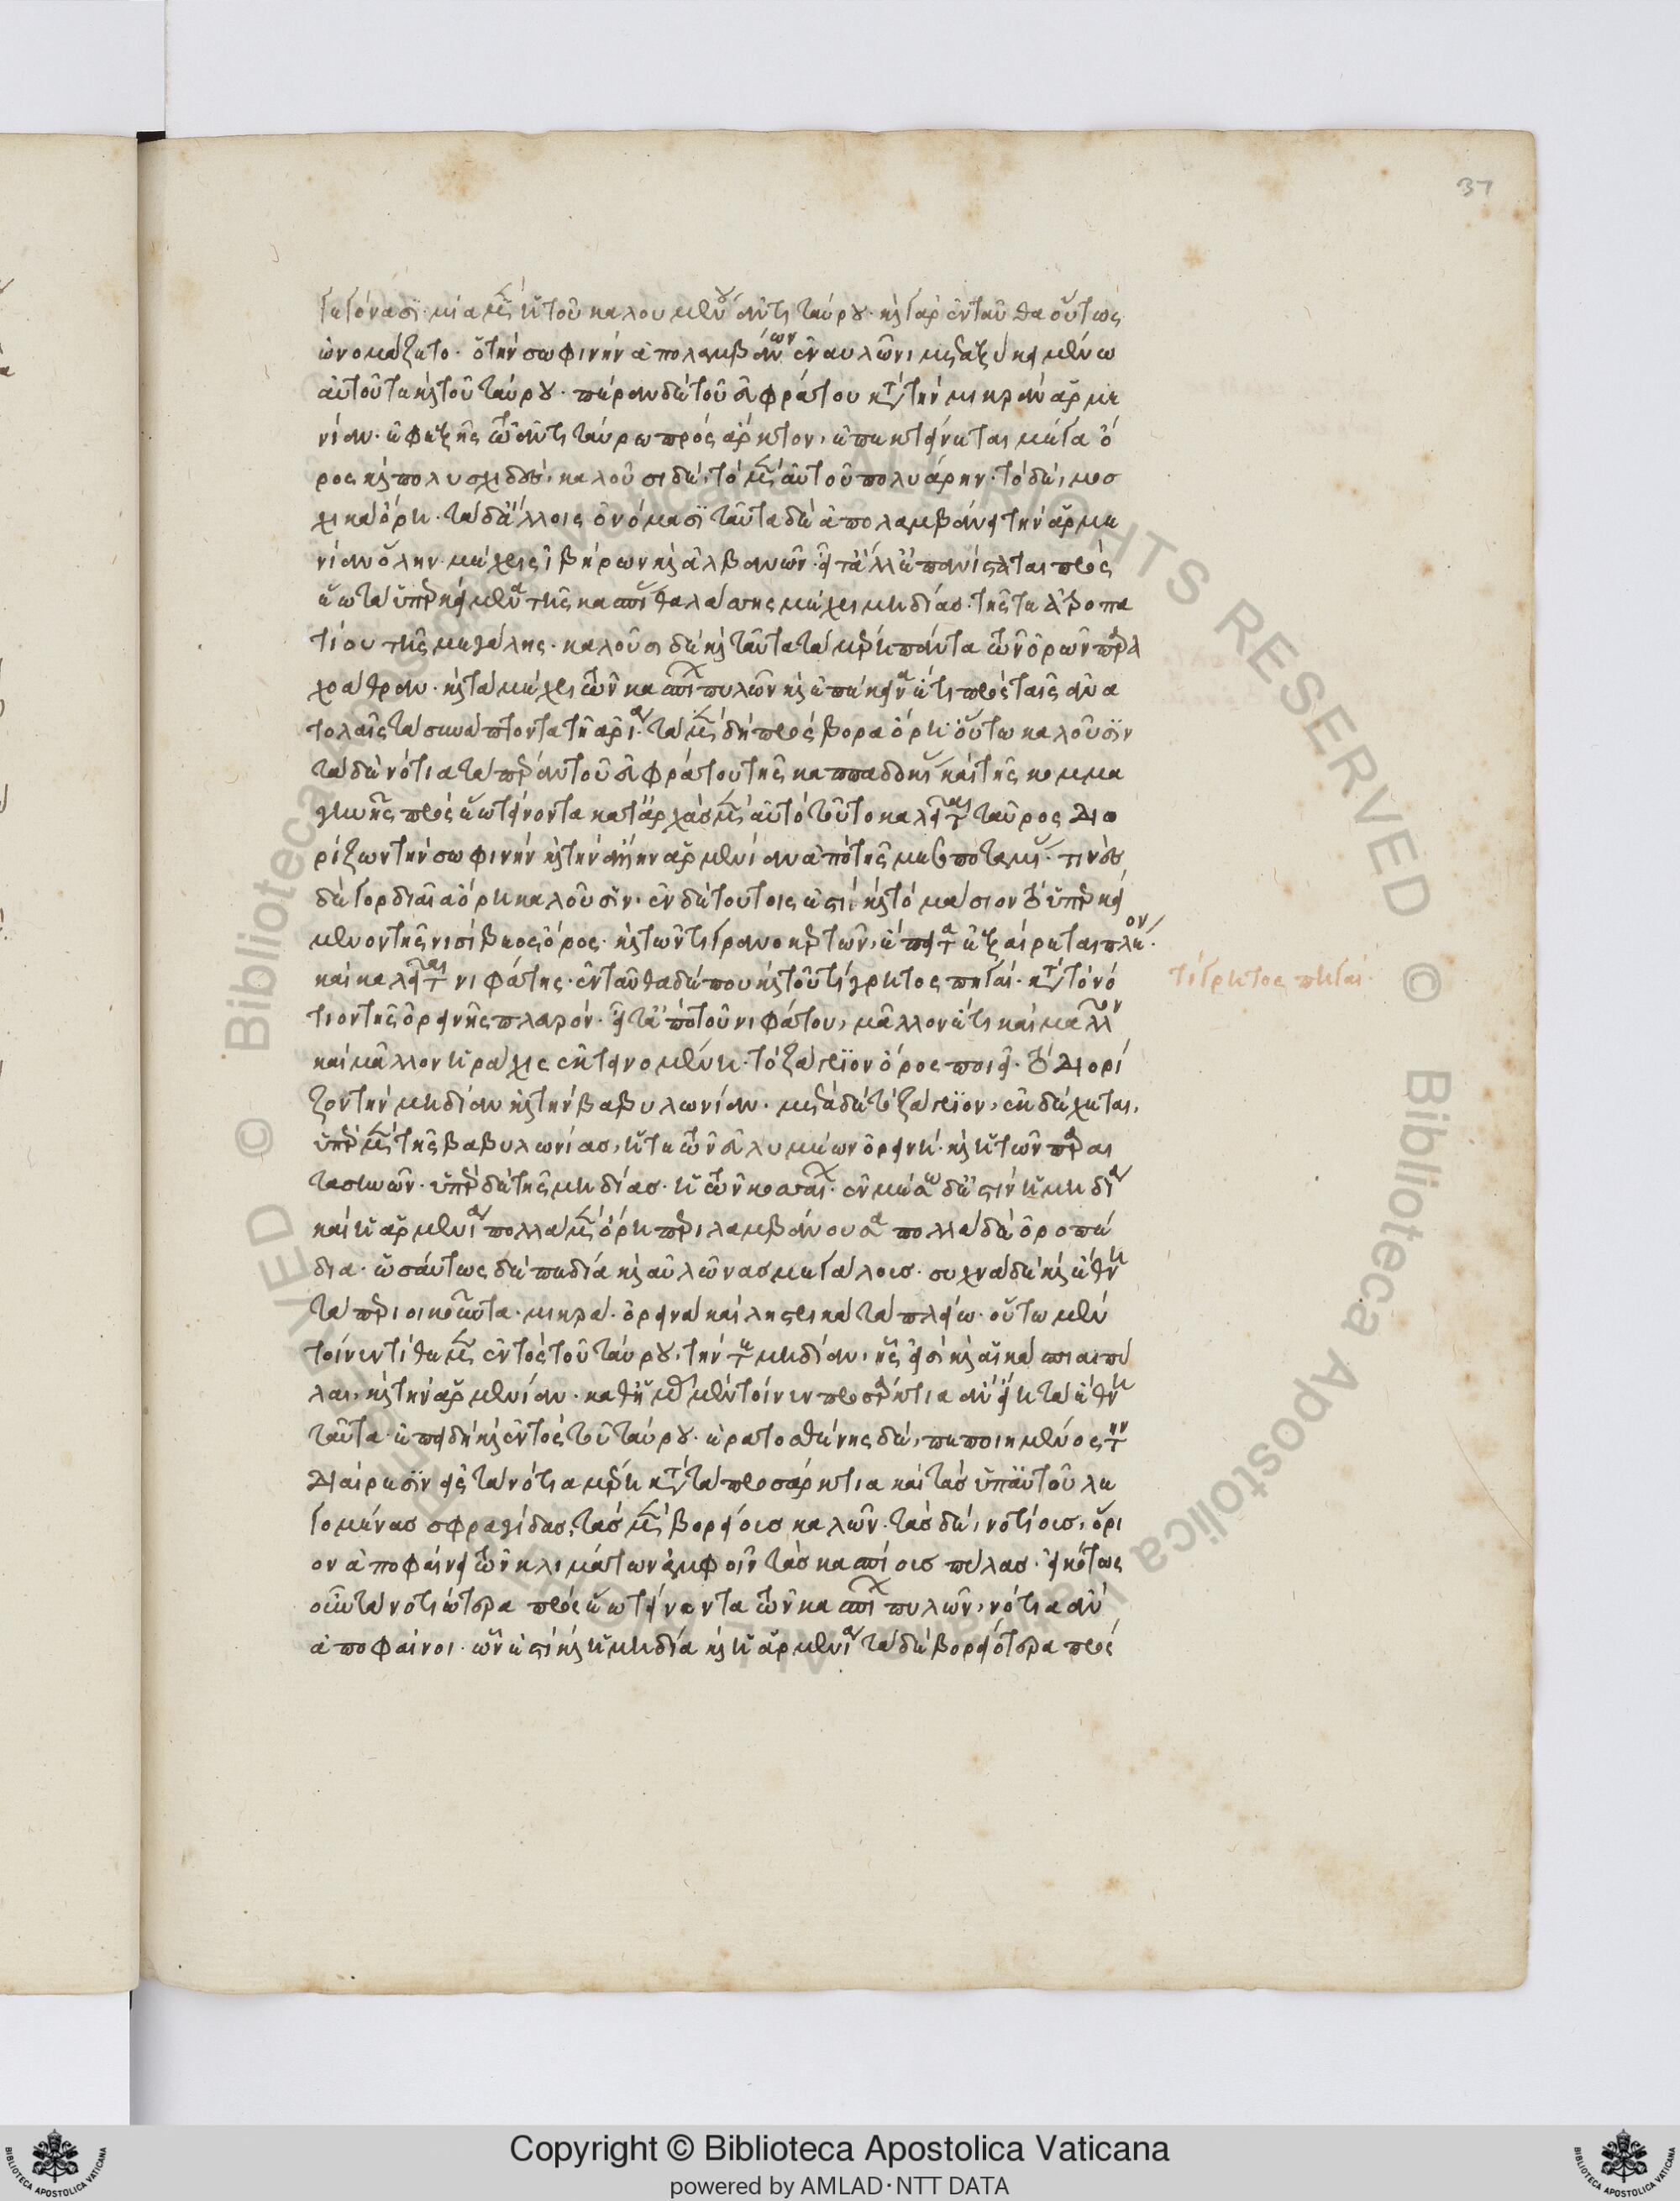 γεγόνασι· μία μὲν ἡ τοῦ καλουμένου ἀντιταύρου· καὶ γὰρ ἐνταῦθα οὕτως
ὠνομάζετο· ὁ τὴν σωφινὴν ἀπολαμβάνων ἐν αυλῶνι μεταξὺ κειμένω
αὐτοῦ τε καὶ τοῦ ταύρου· πέραν δὲ τοῦ εὐφράτου κατὰ τὴν μικρὰν ἀρμε
νίαν· ἐφεξῆς τῶ ἀντιταύρω πρὸς ἄρκτον, ἐπεκτείνεται μέγα ὄ
ρος καὶ πολυσχιδές, καλοῦσι δὲ, τὸ μὲν αὐτοῦ πολυάρην· τὸ δὲ, μοσ
χικὰ ὄρη· τὰ δ' ἄλλοις ὀνόμασι ταῦτα δὲ ἀπολαμβάνει τὴν ἀρμε
νίαν ὅλην· μέχρις ἰβήρων καὶ ἀλβανων· εἶτ' ἄλλ' ἐπανίσταται πρὸς
ἕω τὰ ὑπερκείμενα τῆς κασπίας θαλάττης μέχρι μηδίας· τῆς τε ἀτροπα
τίου τῆς μεγάλης· καλοῦσι δὲ καὶ ταῦτα τὰ μέρη πάντα τῶν ὀρῶν παρα
χοάθραν· καὶ τὰ μέχρι τῶν κασπίων πυλῶν καὶ ἐπέκεινα ἔτι πρὸς ταῖς ἀνα
τολαῖς τὰ συνάπτοντα τῆ ἀρία· τὰ μὲν δὴ πρὸς βορὰ ὄρη οὕτω καλοῦσιν
τὰ δὲ νότια τὰ πέραν τοῦ εὐφράτου τῆς καππαδοκίας καὶ τῆς κομμα
γηνῆς πρὸς ἕω τείνοντα κατ' ἀρχὰς μὲν αὐτὸ τοῦτο καλεῖται ταῦρος διο
ρίζων τὴν σωφινὴν καὶ τὴν ἄλλην ἀρμενίαν ἀπὸ τῆς μεσοποταμίας· τινὲς
δὲ γορδιαῖα ὄρη καλοῦσιν· ἐν δὲ τουτοις ἐστὶ καὶ τὸ μάσιον τὸ ὑπερκεί
μενον τῆς νισίβεος ὄρος· καὶ τῶν τιγρανοκέρτων, ἔπειτα ἐξαίρεται πλέον·
καὶ καλεῖται νιφάτης· ἐνταῦθα δέ που καὶ τοῦ τίγρητος πηγαὶ· κατὰ τὸ νό
τιον τῆς ὀρεινῆς πλευρόν· εἶτ' ἀπὸ τοῦ νιφάτου, μᾶλλον ἔτι καὶ μᾶλλον
καὶ μᾶλλον ἡ ράχις ἐκτεινομένη· τὸ ζάγριον ὄρος ποιεῖ· τὸ διορί
ζον τὴν μηδίαν καὶ τὴν βαβυλωνίαν· μετὰ δὲ τὸ ζάγριον, ἐκδέχεται,
ὑπὲρ μὲν τῆς βαβυλωνίας, ἥ τε τῶν ἐλυμέων ὀρεινὴ· καὶ ἡ τῶν παραι
τασηνῶν· ὑπὲρ δὲ τῆς μηδίας· ἡ τῶν κοσσαίων· ἐν μέσω δ' ἐστὶν ἡ μηδία
καὶ ἡ ἀρμενία πολλὰ μὲν ὄρη περιλαμβάνουσα πολλὰ δὲ ὀροπέ
δια· ὡσάυτως δὲ πεδία καὶ αὐλῶνας μεγάλους· συχνὰ δὲ καὶ ἔθνη
τὰ περιοικοῦντα· μικρὰ· ὀρεινὰ καὶ ληστρικὰ τὰ πλείω· οὕτω μὲν
τοίνυν τίθεμεν ἐντὸς τοῦ ταύρου, τήν τε μηδίαν, ἧς εἰσὶ καὶ αἱ κάσπιαι πύ
λαι, καὶ τὴν ἀρμενίαν· καθ' ἡμᾶς μὲν τοίνυν προσάρκτια ἂν εἴη τὰ ἔθνη
ταῦτα· ἐπειδὴ καὶ ἐντὸς τοῦ ταύρου· ἐρατοσθένης δὲ, πεποιημένος τὴν
διαίρεσιν εἰς τὰ νότια μέρη κατὰ τὰ προσάρκτια καὶ τὰς ὑπ' αὐτοῦ λε
γομένας σφραγίδας, τὰς μὲν βορείους καλῶν· τὰς δὲ, νοτίους, ὅρι
ον ἀποφαίνει τῶν κλιμάτων ἀμφοῖν τὰς κασπίους πύλας· εἰκότως
οὖν τὰ νοτιώτερα πρὸς ἕω τείνοντα τῶν κασπίων πυλῶν, νότια ἂν
ἀποφαίνοι· ὧν ἐστὶ καὶ ἡ μηδία καὶ ἡ ἀρμενία τὰ δὲ βορειότερα πρὸς
τίγρητος πηγαί·
37
Copyright © Biblioteca Apostolica Vaticana
powered by AMLAD·NTT DATA